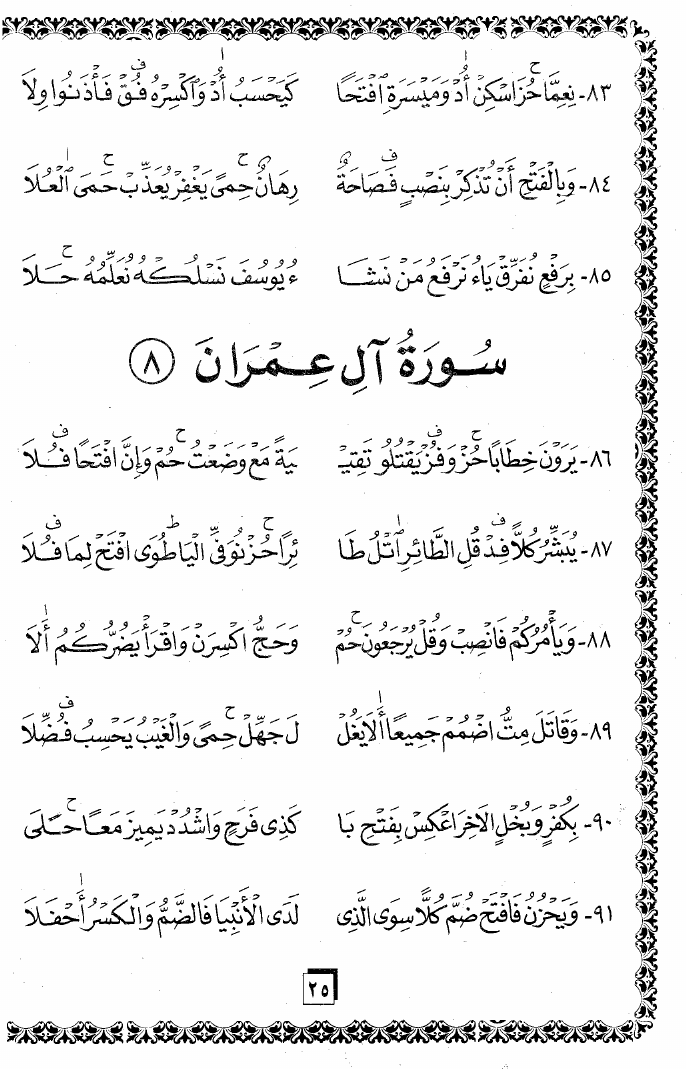 ٨٣- نِعِمَّا حُزَ اسْكِنْ أُدْ وَمَيْسَرَةِ افْتَحًا كَيَحْسَبُ أُدْ وَاكْسِرْهُ فُقْ فَأْذَنُوا وِلَا
٨٤- وَبِالْفَتْحِ أَنْ تُذْكِرْ بِنَصْبٍ فَصَاحَةٌ رِهَانٌ حِمًى يَغْفِرْ يُعَذِّبْ حَمَى الْعُلَا
٨٥- بِرَفْعٍ نُفَرِّقُ يَاءُ نَرْفَعُ مَنْ نَشَا ءُ يُوسُفَ نَسْلُكْهُ نُعَلِّمُهُ حَلَا
سُورَةُ آلِ عِمْرَانَ ٨
٨٦- يَرَوْنَ خِطَابًا حُزْ وَفُزْ يَقْتُلُو تَقِيْـ ـيَةً مَعْ وَضَعْتُ حُمْ وَإِنَّ افْتَحًا فُلَا
٨٧- يُبَشِّرُ كُلًّا فِدْ قُلِ الطَّائِرِ اتْلُ طَا ئِرًا حُزْ نُوَفِّي الْيَا طُوَى افْتَحْ لِمَا فُلَا
٨٨- وَيَأْمُرُكُمْ فَانْصِبْ وَقُلْ يُرْجَعُونَ حُمْ وَحَجُّ اكْسِرَنْ وَاقْرَأْ يَضُرُّكُمُ أَلَا
٨٩- وَقَاتَلَ مِتُّ اضْمُمْ جَمِيعًا أَلَا يَغُلْـ لَ جَهِّلْ حِمًى وَالْغَيْبُ يَحْسِبُ فُضِّلَا
٩٠- بِكُفْرٍ وَبُخْلٍ الْآخِرَ اعْكِسْ بِفَتْحِ بَا كَذِي فَرَحٍ وَاشْدُدْ يَمِيزَ مَعًا حَلَى
٩١- وَيَحْزُنُ فَافْتَحْ ضُمَّ كُلًّا سِوَى الَّذِي لَدَى الْأَنْبِيَا فَالضَّمُّ وَالْكَسْرُ أَحْفَلَا
٢٥